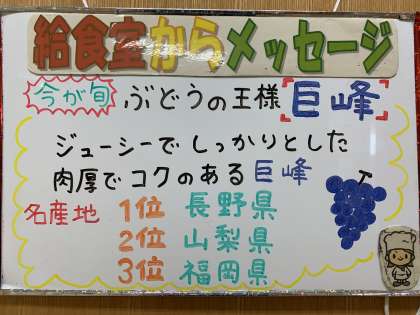 給食室からメッセージ
今が旬 ぶどうの王様 [巨峰]
ジューシーでしっかりとした
肉厚でコクのある巨峰
名産地 1位 長野県
2位 山梨県
3位 福岡県